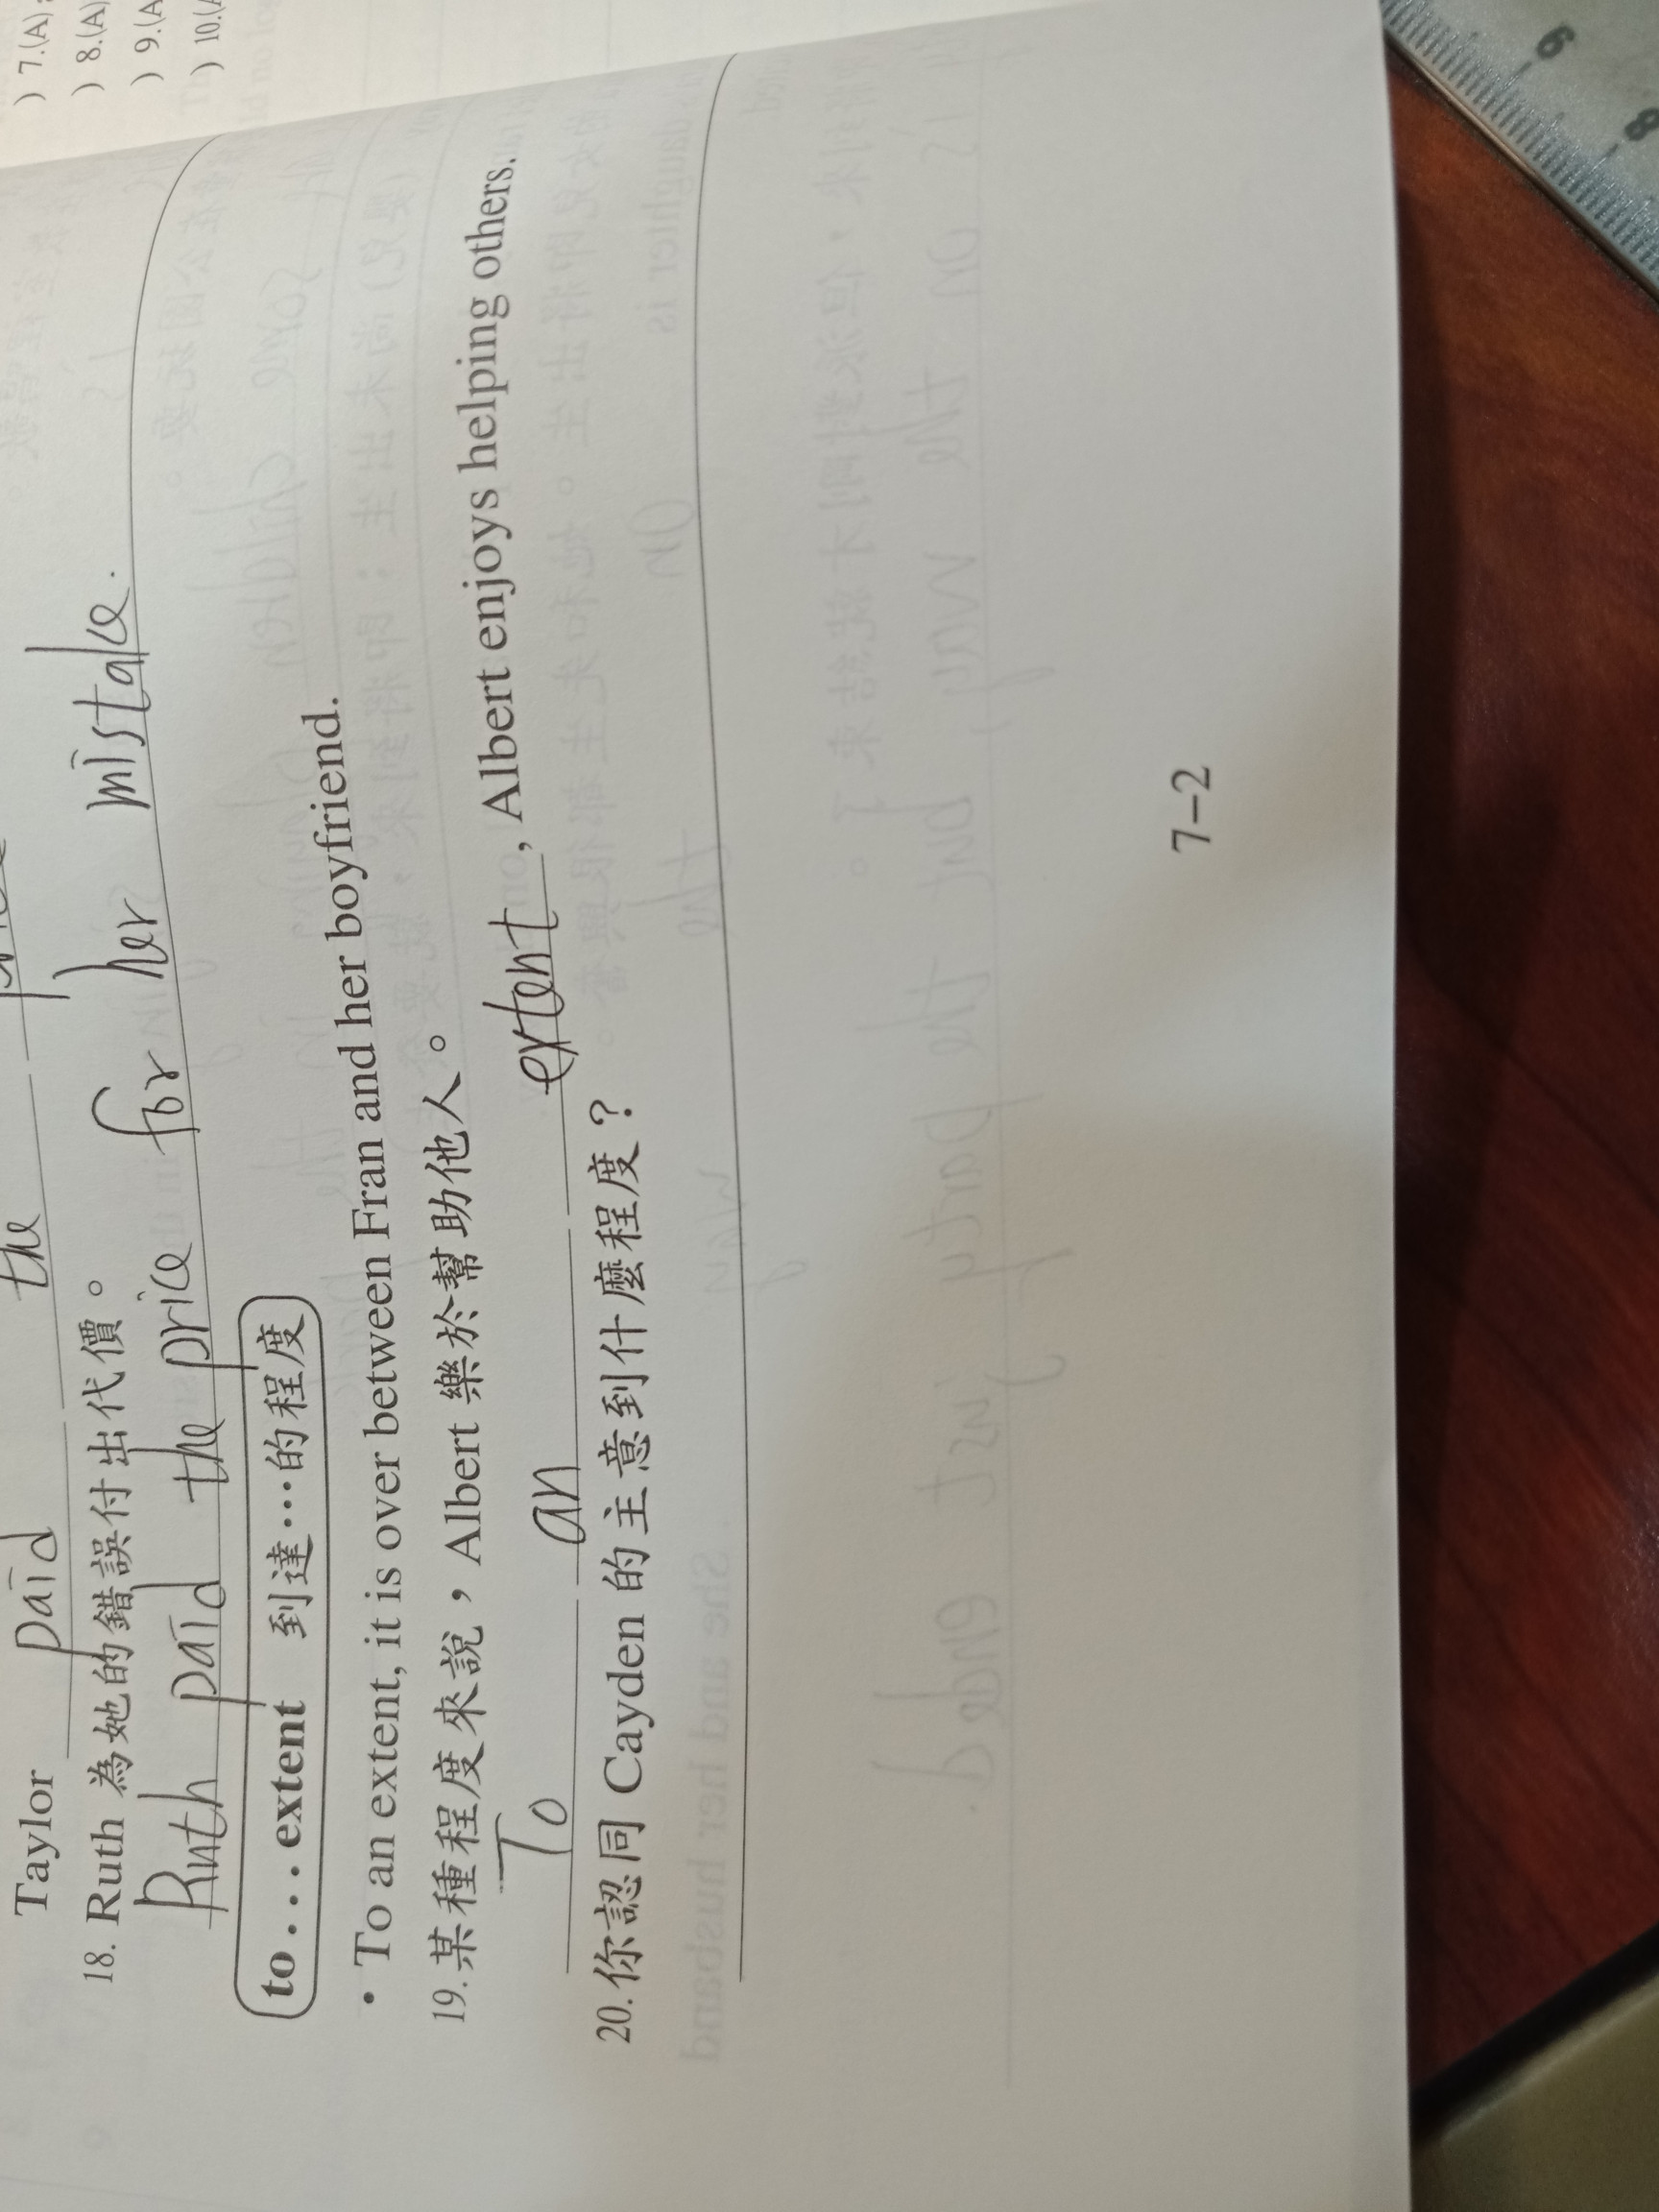 ) 7.(A)
) 8.(A)
) 9.(A
) 10.(A
Taylor paid the
18. Ruth 為她的錯誤付出代價。
Ruth paid the price for her mistake.
to . . . extent 到達…的程度
• To an extent, it is over between Fran and her boyfriend.
19. 某種程度來說，Albert 樂於幫助他人。
To an extent, Albert enjoys helping others.
20. 你認同 Cayden 的主意到什麼程度？
7–2
6
8